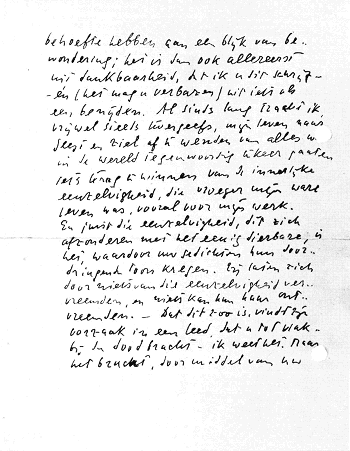 behoefte hebben aan een blijk van be-
wondering; het is dan ook allereerst
uit dankbaarheid, dat ik u dit schrijf -
en (het mag u verbazen) uit iets als
een, benijden. Al sinds lang tracht ik
vrijwel steeds tevergeefs, mijn leven naar
geest en ziel af te wenden van alles w
in de wereld tegenwoordig te keer gaat en
iets terug te winnen van de innerlijke
eenzelvigheid, die vroeger mijn ware
leven was, vooral voor mijn werk.
En juist die eenzelvigheid, dit zich
afzonderen met het eenig dierbare, is
het, waardoor uw gedichten hun door-
dringende toon kregen. Zij laten zich
door niets van die eenzelvigheid ver-
vreemden, en niets kan hun haar ont-
vreemden. - Dat dit zoo is, vindt zijn
oorzaak in een leed dat u tot vlak-
bij de dood bracht - ik weet het. Maar
het bracht, door middel van uw